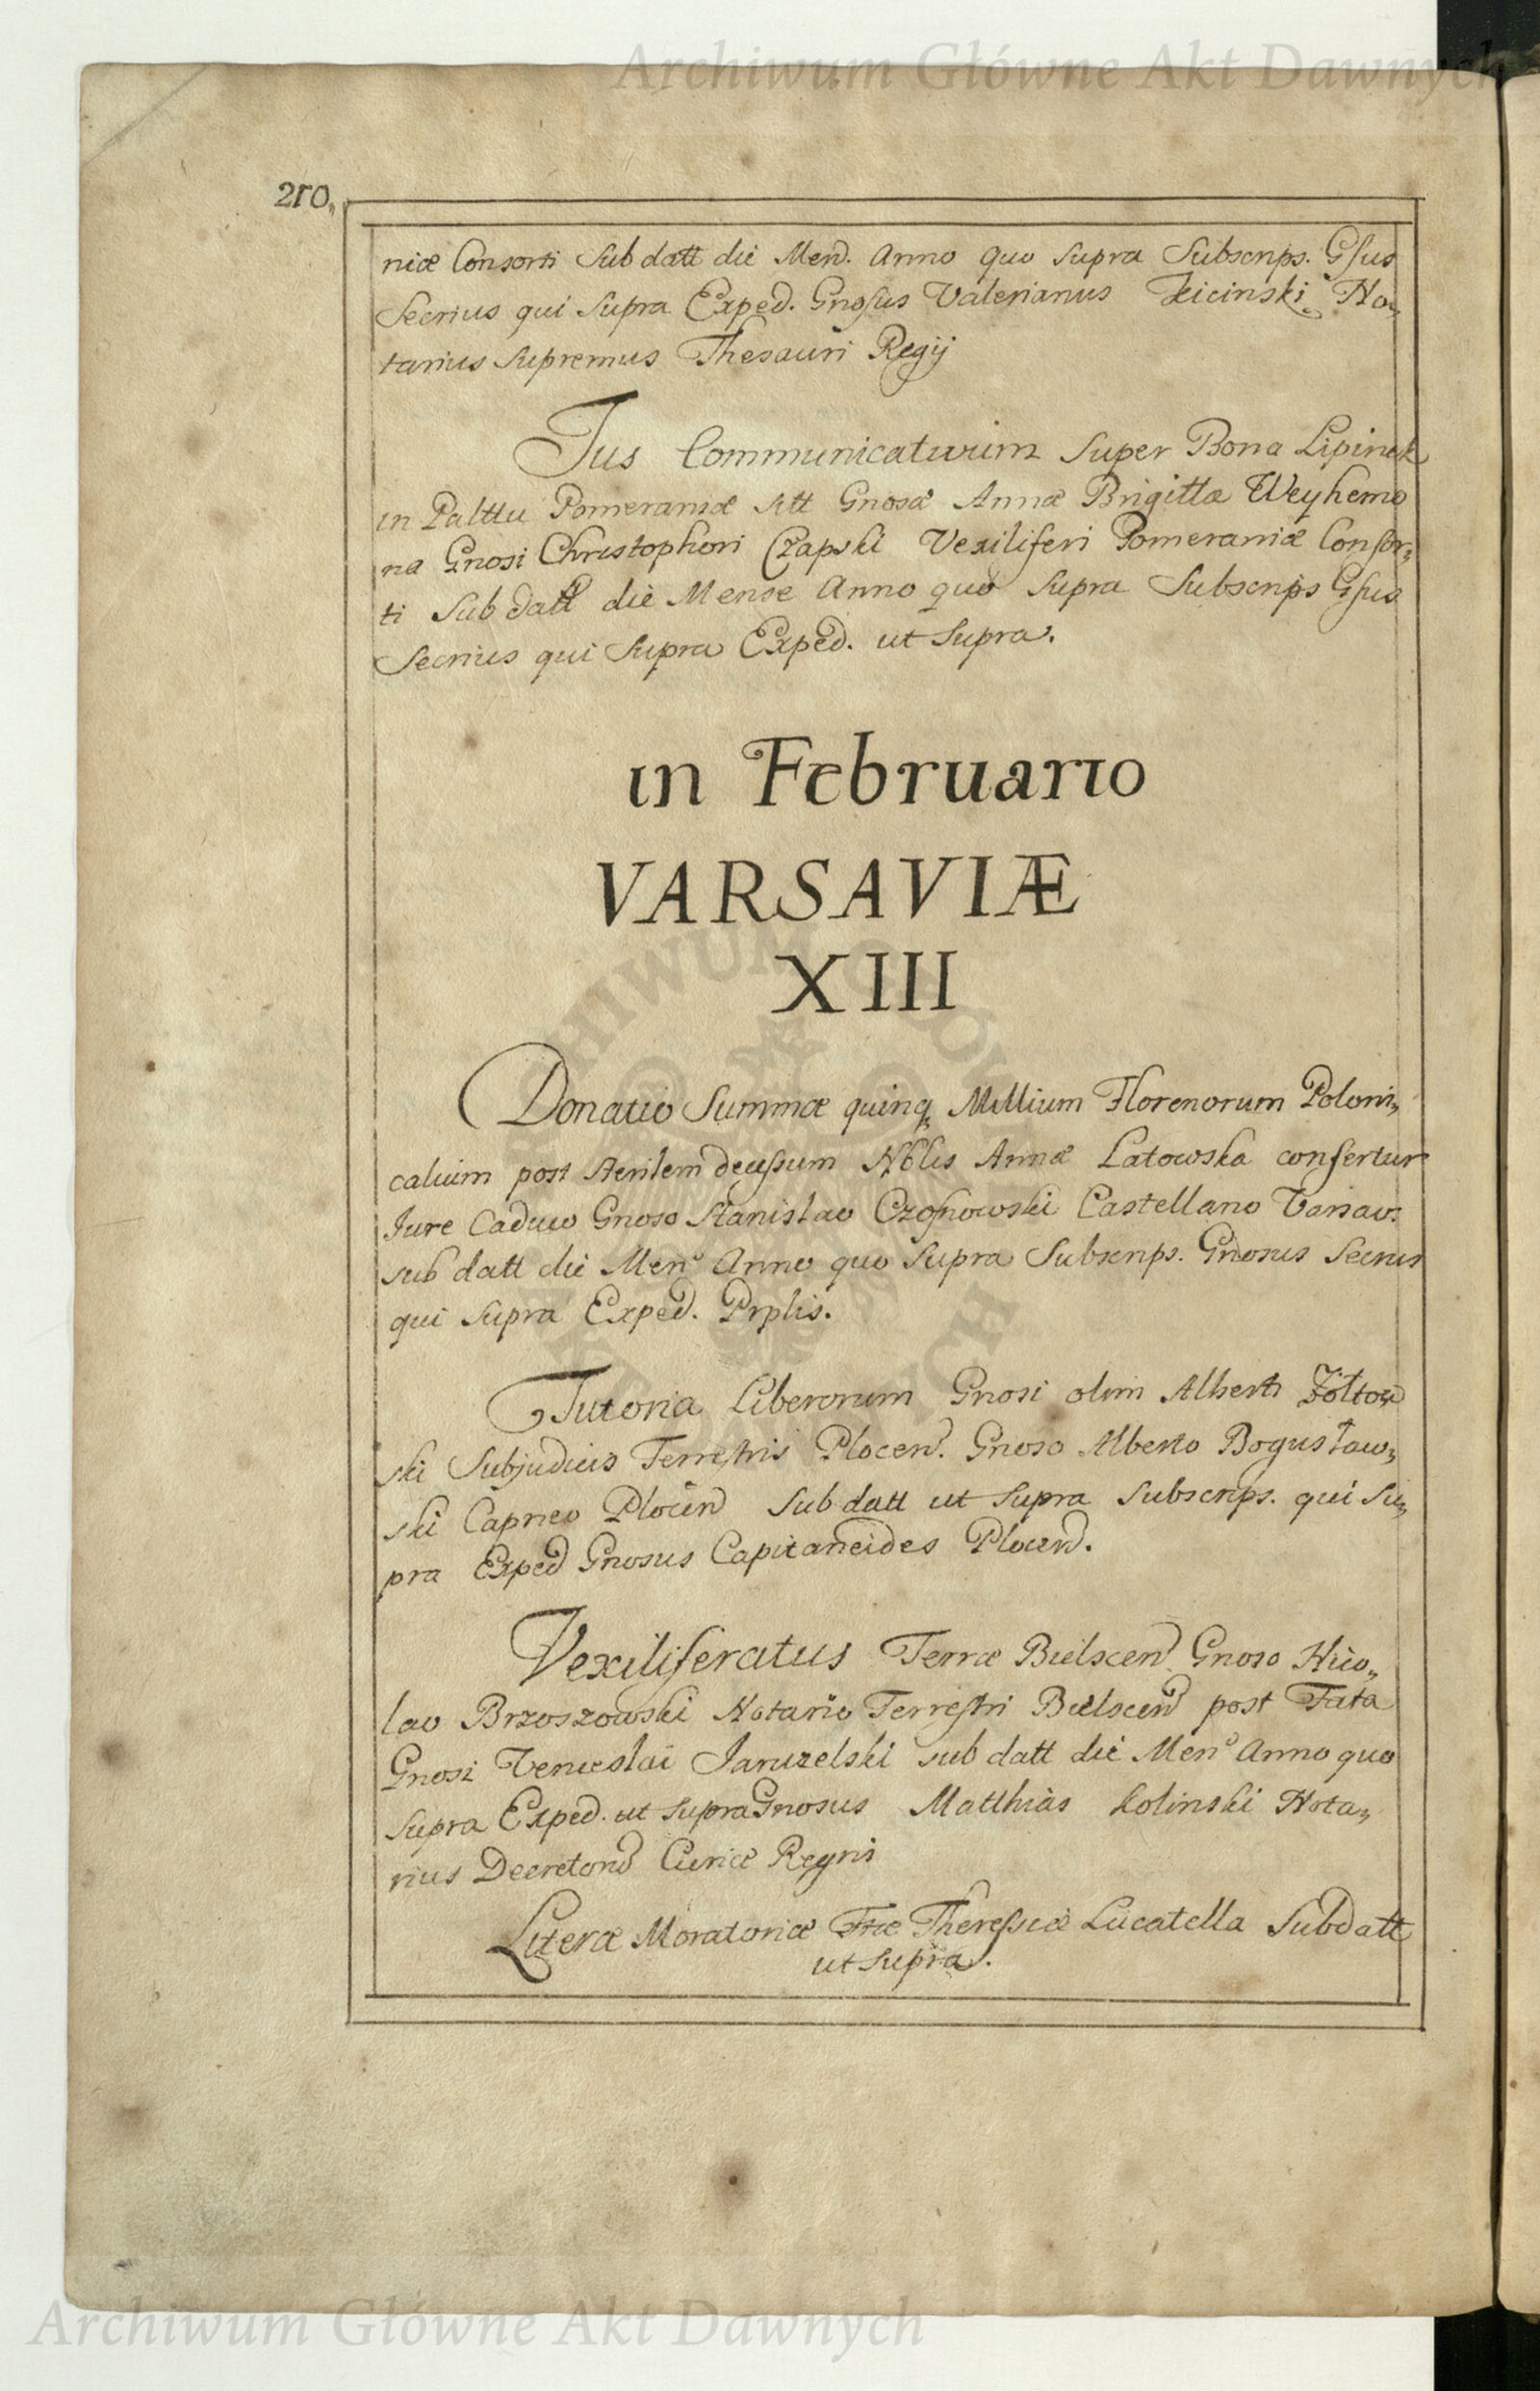 Archiwum Główne Akt Dawnych
210.
niæ Consorti Sub datt die Men. Anno quo supra Subscrips. Gsus
Secrius qui supra Exped. Gnosus Valerianus Kicinski No„
tarius Supremus Thesauri Regij
Jus Communicativum super Bona Lipinek
in Palttu Pomeraniæ sitt Gnosæ Annæ Brigittæ Weyhemo
na Gnosi Christophori Czapski Vexiliferi Pomeraniæ Consor„
ti Sub datt die Mense Anno quo supra Subscrips Gsus
Secrius qui supra Exped. ut supra.
in Februario
VARSAVIÆ
XIII
Donatio Summæ quinq Millium Florenorum Poloni„
calium post sterilem decessum Nblis Annæ Latowska confertur
Jure Caduco Gnoso Stanislao Czosnowski Castellano Varsav:
sub datt die Men Anno quo supra Subscrips. Gnosus Secrius
qui supra Exped. Prplis.
Tutoria Liberorum Gnosi olim Alberti Żółtow
ski Subjudicis Terrestris Plocen. Gnoso Alberto Bogusław„
ski Capneo Plocen Sub datt ut supra Subscrips. qui su„
pra Exped Gnosus Capitaneides Plocen.
Vexiliferatus Terræ Bielscen Gnoso Nico„
lao Brzoszowski Notario Terrestri Bielscen post Fata
Gnosi Venceslai Jaruzelski sub datt die Men Anno quo
supra Exped. ut supra Gnosus Matthias Kolinski Nota„
rius Decretorū Curiæ Regni
Literæ Moratoriæ Theressiæ Lucatella Sub datt
ut supra.
Archiwum Główne Akt Dawnych